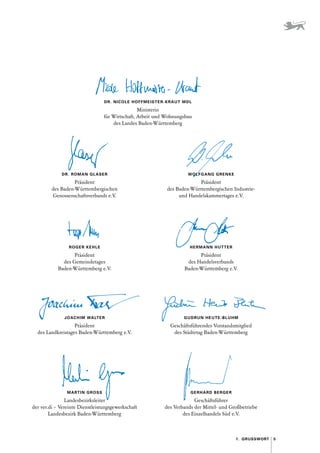 Nicole Hoffmeister-Kraut
DR. NICOLE HOFFMEISTER-KRAUT MDL
Ministerin
für Wirtschaft, Arbeit und Wohnungsbau
des Landes Baden-Württemberg
Glaser
DR. ROMAN GLASER
Präsident
des Baden-Württembergischen
Genossenschaftsverbands e.V.
WOLFGANG GRENKE
Präsident
des Baden-Württembergischen Industrie-
und Handelskammertages e.V.
ROGER KEHLE
Präsident
des Gemeindetages
Baden-Württemberg e.V.
HERMANN HUTTER
Präsident
des Handelsverbands
Baden-Württemberg e.V.
Joachim Walter
JOACHIM WALTER
Präsident
des Landkreistages Baden-Württemberg e.V.
Gudrun Heute-Bluhm
GUDRUN HEUTE-BLUHM
Geschäftsführendes Vorstandsmitglied
des Städtetag Baden-Württemberg
Martin Gross
MARTIN GROSS
Landesbezirksleiter
der ver.di – Vereinte Dienstleistungsgewerkschaft
Landesbezirk Baden-Württemberg
GERHARD BERGER
Geschäftsführer
des Verbands der Mittel- und Großbetriebe
des Einzelhandels Süd e.V.
1. GRUSSWORT